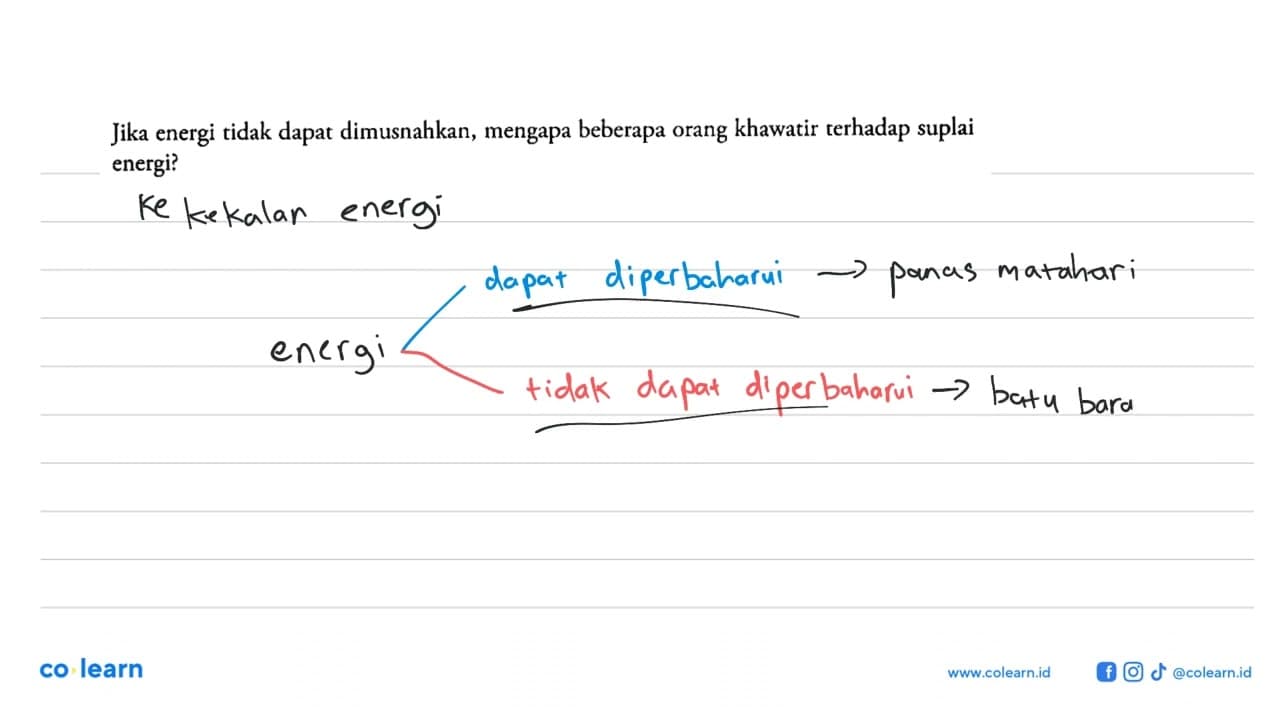 Jika energi tidak dapat dimusnahkan, mengapa beberapa orang khawatir terhadap suplai
energi?
Ke kekalan energi
dapat diperbaharui → panas matahari
energi
tidak dapat diperbaharui → batu bara
co learn
www.colearn.id @colearn.id